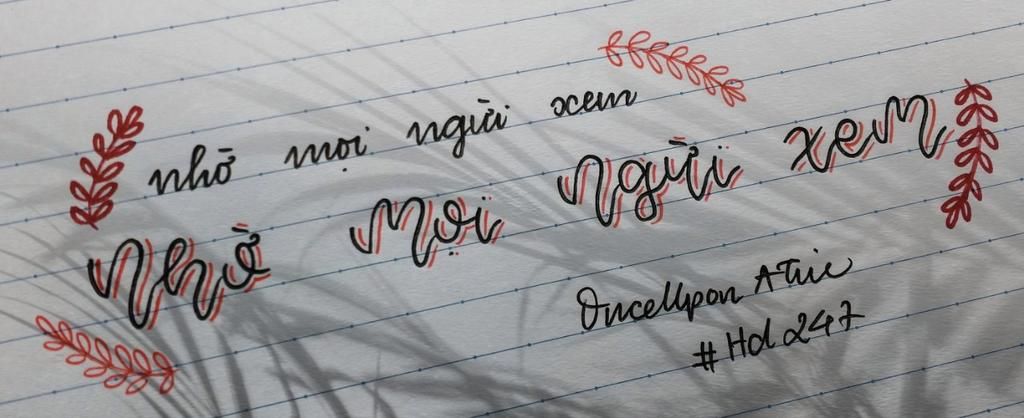 nhờ mọi ngừi xem
Nhờ mọi ngừi xem
OnceUpon A Tric
#Hd 247